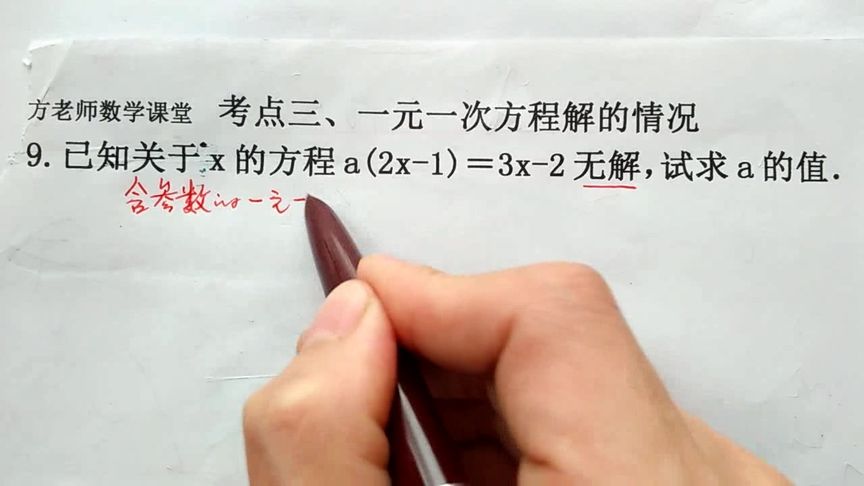 方老师数学课堂 考点三、一元一次方程解的情况
9. 已知关于 x 的方程 a(2x-1)=3x-2 无解,试求 a 的值.
含参数的一元一